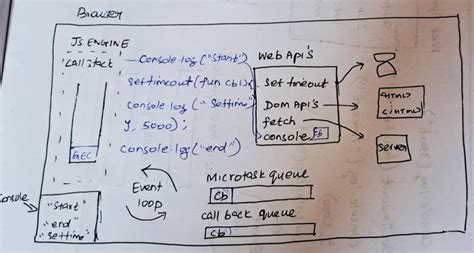 Browser
JS ENGINE
Call stack
GEC
Console.log ("Start")
settimeout (fun cb() {
Console.log ("Settime")
}, 5000);
Console.log ("end")
Web Api's
Set timeout
Dom Api's
fetch
console
cb
<HTML>
</HTML>
Server
Event
loop
Microtask queue
cb
Call back queue
cb
Console
"Start"
"end"
"Settime"